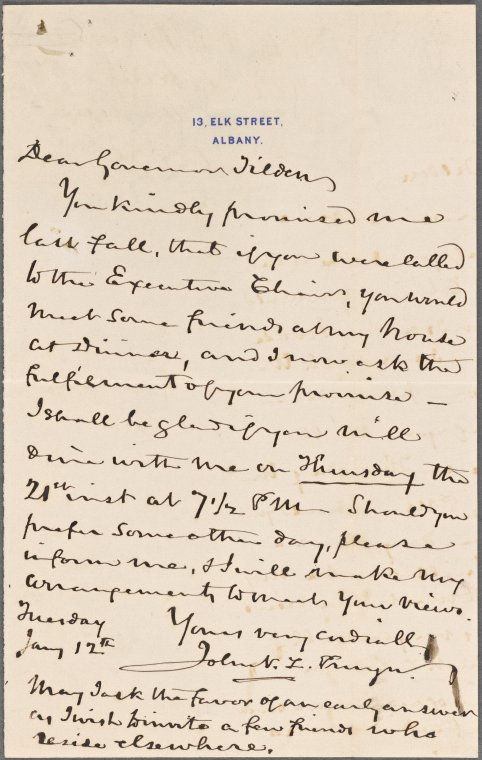 13, ELK STREET,
ALBANY.
Dear Governor Tilden,
You kindly promised me
last Fall, that if you were called
to the Executive Chair, you would
meet some friends at my house
at Dinner, and I now ask the
fulfilment of your promise –
I shall be glad if you will
dine with me on Thursday the
21st inst at 7 1/2 PM – Should you
prefer some other day, please
inform me, & I will make my
arrangements to meet your views.
Yours very cordially
John V. L. Pruyn
Tuesday
Jany 12th
May I ask the favor of an early answer
as I wish to invite a few friends who
reside elsewhere.